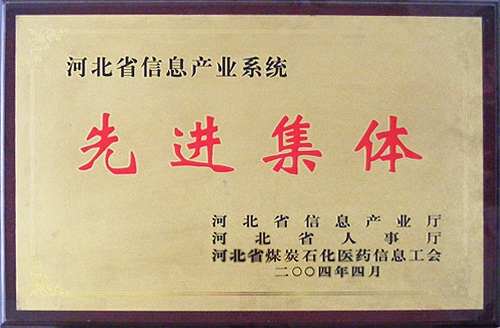 河北省信息产业系统
先进集体
河北省信息产业厅
河北省人事厅
河北省煤炭石化医药信息工会
二〇〇四年四月